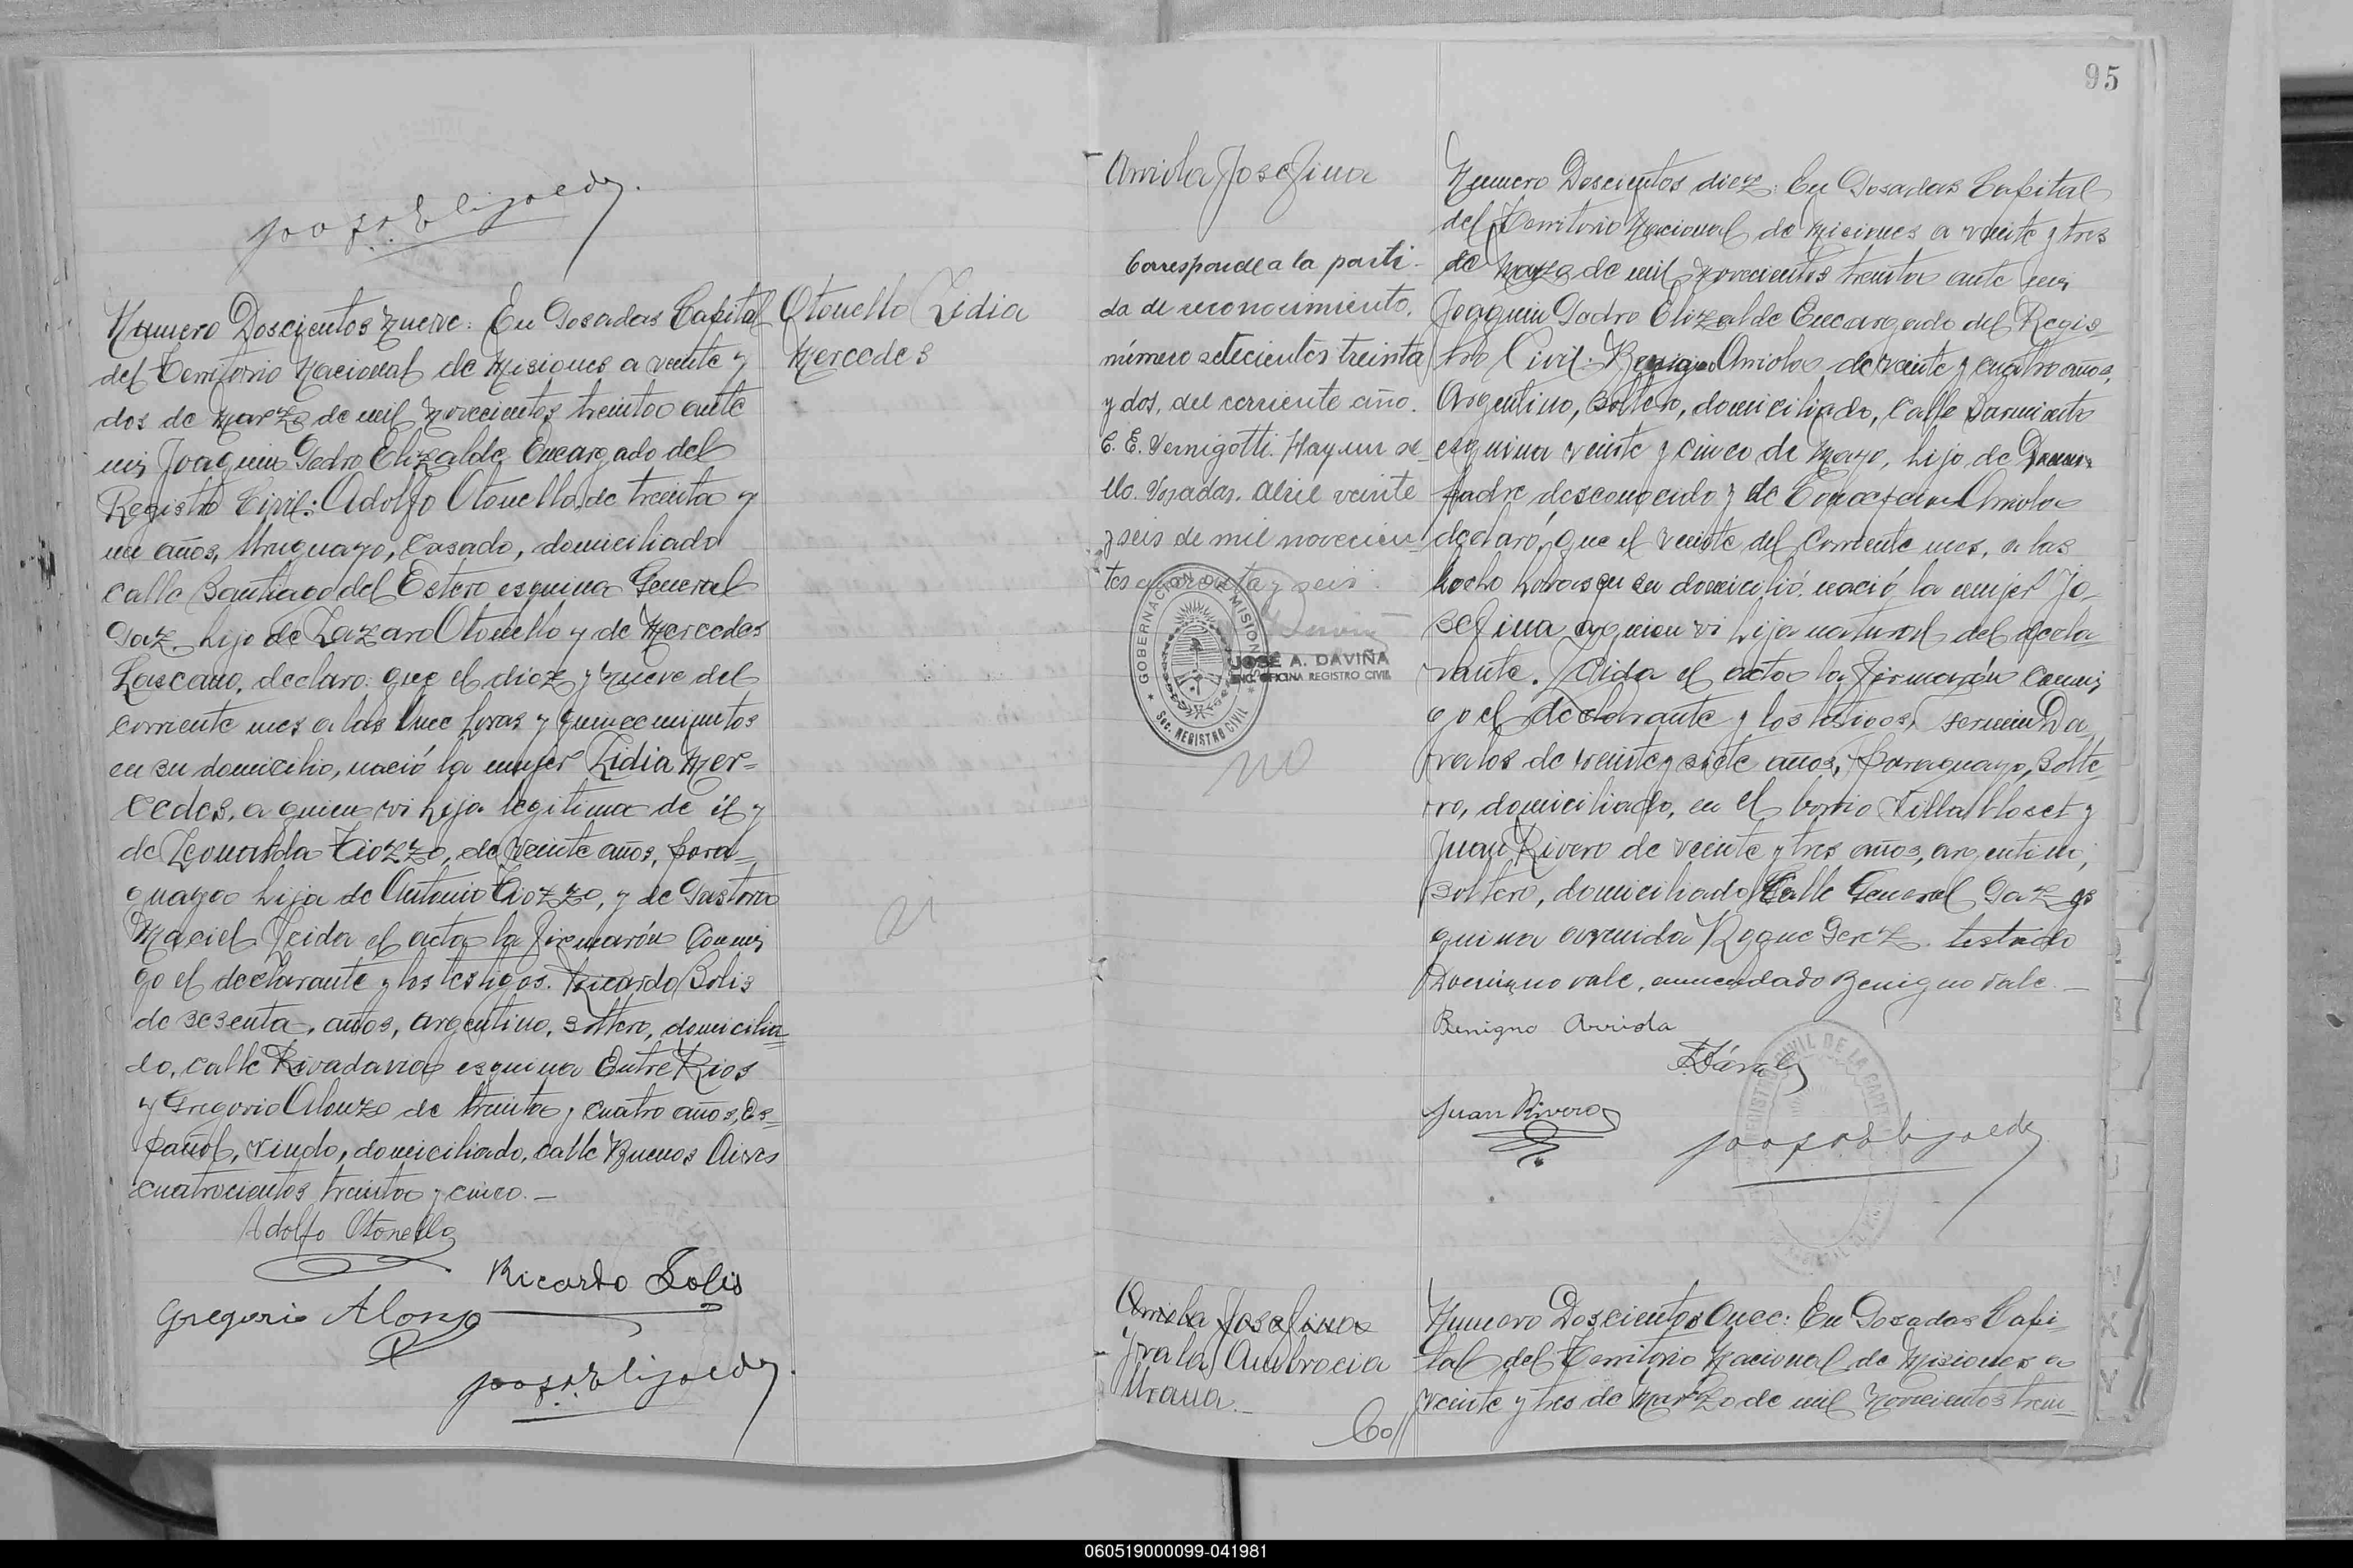 Numero Doscientos nueve: En Posadas Capital
del Territorio Nacional de Misiones a veinte y
dos de Marzo de mil novecientos treinta ante
mi, Joaquin Pedro Elizalde Encargado del
Registro Civil: Adolfo Otonello, de treinta y
un años, Uruguayo, Casado, domiciliado
calle Santiago del Estero esquina General
Paz, hijo de Lazaro Otonello y de Mercedes
Lascano, declaro: que el diez y nueve del
corriente mes a las horas y quince minutos
en su domicilio, nació la mujer Lidia Mer=
cedes, a quien vi hija legitima de él y
de Leonarda Tiozzo, de veinte años, para=
guaya hija de Antonio Tiozzo, y de Pastora
Maciel. Leida el acta la firmarón conmi
go el declarante y los testigos. Ricardo Solis
de sesenta, años, argentino, soltero, domicilia
do, calle Rivadavia esquina Entre Rios
y Gregorio Alonzo de treinta y cuatro años, Es=
pañol, viudo, domiciliado, calle Buenos Aires
cuatrocientos treinta y cinco.—
Adolfo Otonello
Ricardo Solis
Gregorio Alonso
Otonello Lidia
Mercedes
95
Arriola Josefina
Corresponde a la parti-
da de reconocimiento,
número setecientos treinta
y dos, del corriente año.
C. E. Vernigotti. Hay un se
llo. Posadas. Abril veinte
y seis de mil novecien
tos cuarenta y seis.
GOBERNACION DE MISIONES
Sec. REGISTRO CIVIL
JOSÉ A. DAVIÑA
ENC. OFICINA REGISTRO CIVIL
no
Numero Doscientos diez: En Posadas Capital
del Territorio Nacional de Misiones a veinte y tres
de Marzo de mil novecientos treinta ante mi
Joaquin Pedro Elizalde Encargado del Regis
tro Civil: Benigno Arriola de veinte y cuatro años,
Argentino, Soltero, domiciliado, Calle Sarmiento
esquina veinte y cinco de Mayo, hijo de
padre desconocido y de Arriola
declaró, que el veinte del corriente mes, a las
hocho horas en su domicilió, nació la mujer Jo_
sefina a quien vi hija natural del decla
rante. Leida el acta la firmarón conmi
go el declarante y los testigos, Da
valos de veinte y siete años, paraguayo, Solte
ro, domiciliado, en el barrio Villa y
Juan Rivero de veinte y tres años, argentino,
soltero, domiciliado Calle General Paz es
quina avenida Roque Perez. testado
no vale, enmendado Benigno vale.—
Benigno Arriola
Juan Rivero
Arriola Josefina
Yrala Ambrocia
Urana.—
Numero Doscientos Once: En Posadas Capi=
tal del Territorio Nacional de Misiones a
veinte y tres de Marzo de mil Novecientos trein=
060519000099-041981